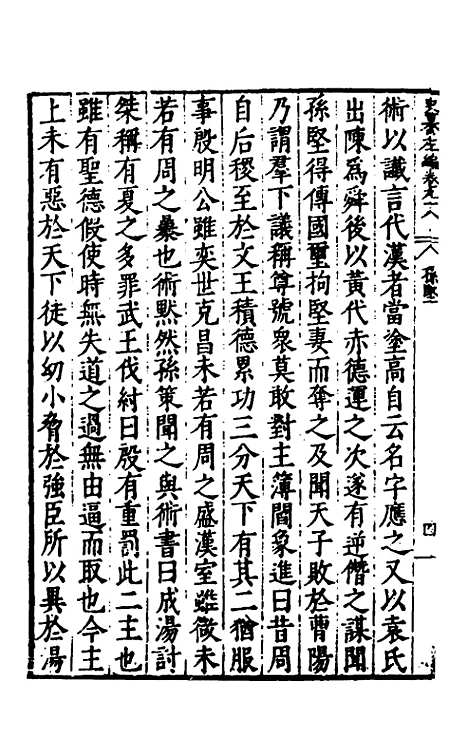 史纂左編卷九十八 孫堅 四一
術以讖言代漢者當塗高自云名字應之又以袁氏
出陳為舜後以黃代赤德運之次遂有逆僭之謀聞
孫堅得傳國璽拘堅妻而奪之及聞天子敗於曹陽
乃謂羣下議稱尊號衆莫敢對主簿閻象進曰昔周
自后稷至於文王積德累功三分天下有其二猶服
事殷明公雖奕世克昌未若有周之盛漢室雖微未
若有周之衰也術默然孫策聞之與術書曰成湯討
桀稱有夏之多罪武王伐紂曰殷有重罰此二主也
雖有聖德假使時無失道之過無由逼而取也今主
上未有惡於天下徒以幼小脅於強臣所以異於湯